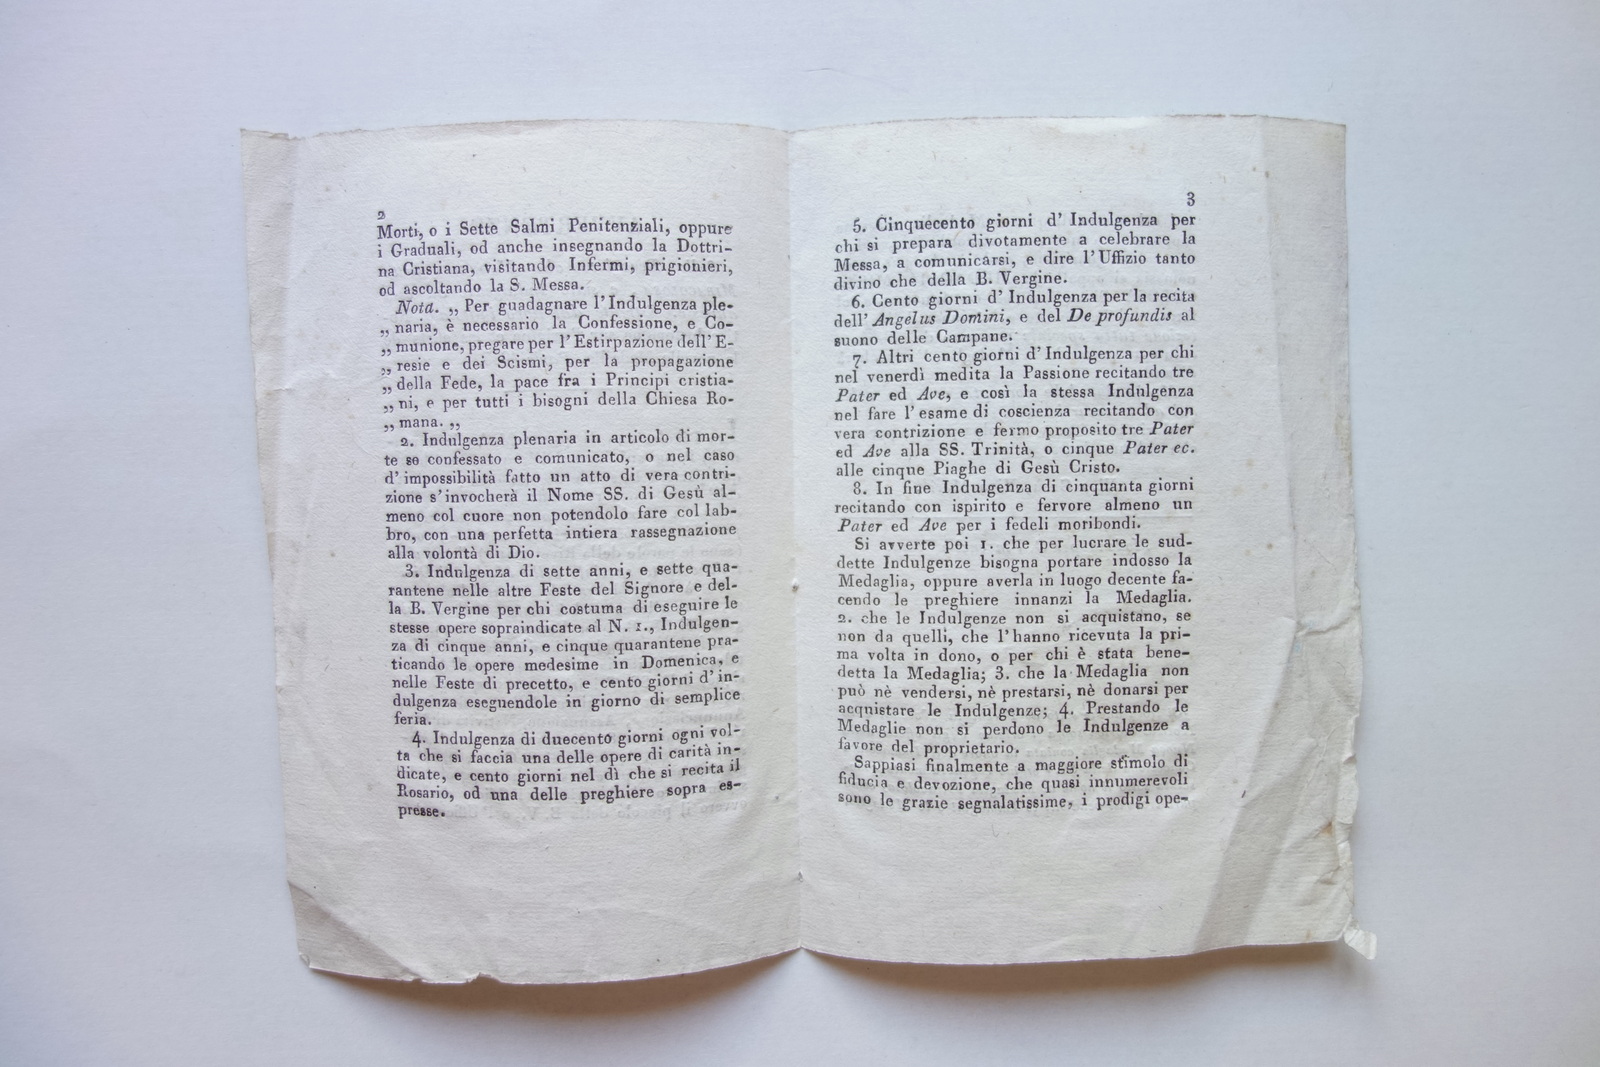 2
Morti, o i Sette Salmi Penitenziali, oppure
i Graduali, od anche insegnando la Dottri-
na Cristiana, visitando Infermi, prigionieri,
od ascoltando la S. Messa.
Nota. „ Per guadagnare l'Indulgenza ple-
„ naria, è necessario la Confessione, e Co-
„ munione, pregare per l'Estirpazione dell'E-
„ resie e dei Scismi, per la propagazione
„ della Fede, la pace fra i Principi cristia-
„ ni, e per tutti i bisogni della Chiesa Ro-
„ mana. „
2. Indulgenza plenaria in articolo di mor-
te se confessato e comunicato, o nel caso
d'impossibilità fatto un atto di vera contri-
zione s'invocherà il Nome SS. di Gesù al-
meno col cuore non potendolo fare col lab-
bro, con una perfetta intiera rassegnazione
alla volontà di Dio.
3. Indulgenza di sette anni, e sette qua-
rantene nelle altre Feste del Signore e del-
la B. Vergine per chi costuma di eseguire le
stesse opere sopraindicate al N. 1., Indulgen-
za di cinque anni, e cinque quarantene pra-
ticando le opere medesime in Domenica, e
nelle Feste di precetto, e cento giorni d'in-
dulgenza eseguendole in giorno di semplice
feria.
4. Indulgenza di duecento giorni ogni vol-
ta che si faccia una delle opere di carità in-
dicate, e cento giorni nel dì che si recita il
Rosario, od una delle preghiere sopra es-
presse.
3
5. Cinquecento giorni d'Indulgenza per
chi si prepara divotamente a celebrare la
Messa, a comunicarsi, e dire l'Uffizio tanto
divino che della B. Vergine.
6. Cento giorni d'Indulgenza per la recita
dell'Angelus Domini, e del De profundis al
suono delle Campane.
7. Altri cento giorni d'Indulgenza per chi
nel venerdì medita la Passione recitando tre
Pater ed Ave, e così la stessa Indulgenza
nel fare l'esame di coscienza recitando con
vera contrizione e fermo proposito tre Pater
ed Ave alla SS. Trinità, o cinque Pater ec.
alle cinque Piaghe di Gesù Cristo.
8. In fine Indulgenza di cinquanta giorni
recitando con ispirito e fervore almeno un
Pater ed Ave per i fedeli moribondi.
Si avverte poi 1. che per lucrare le sud-
dette Indulgenze bisogna portare indosso la
Medaglia, oppure averla in luogo decente fa-
cendo le preghiere innanzi la Medaglia.
2. che le Indulgenze non si acquistano, se
non da quelli, che l'hanno ricevuta la pri-
ma volta in dono, o per chi è stata bene-
detta la Medaglia; 3. che la Medaglia non
può nè vendersi, nè prestarsi, nè donarsi per
acquistare le Indulgenze; 4. Prestando le
Medaglie non si perdono le Indulgenze a
favore del proprietario.
Sappiasi finalmente a maggiore stimolo di
fiducia e devozione, che quasi innumerevoli
sono le grazie segnalatissime, i prodigi ope-